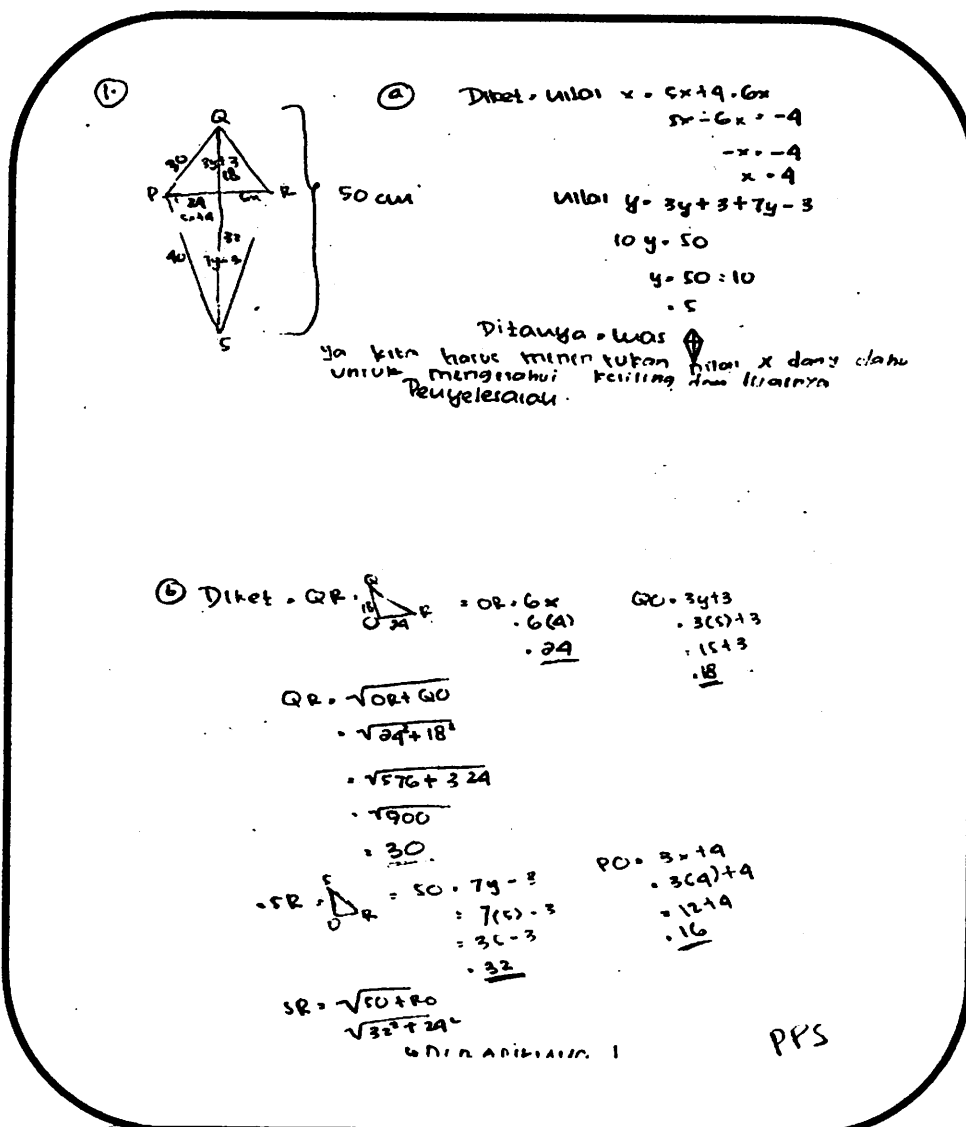 1.
Q
30
3y+3
18
P
24
6x
R
5x+4
32
40
7y-3
S
50 cm
a Diket = nilai x = 5x+4=6x
5x-6x=-4
-x=-4
x=4
nilai y = 3y+3+7y-3
10y=50
y=50:10
=5
Ditanya = luas
ya kita harus menentukan nilai x dan y dahu
untuk mengetahui keliling dan luasnya
Penyelesaian.
b Diket = QR =
Q
18
O 24 R
= OR = 6x
= 6(4)
= 24
QO = 3y+3
= 3(5)+3
= 15+3
= 18
QR = √OR+QO
= √24²+18²
= √576+324
= √900
= 30
= SR =
S
O R
= SO = 7y-3
= 7(5)-3
= 35-3
= 32
PO = 3x+4
= 3(4)+4
= 12+4
= 16
SR = √SO+RO
√32²+24²
PPS